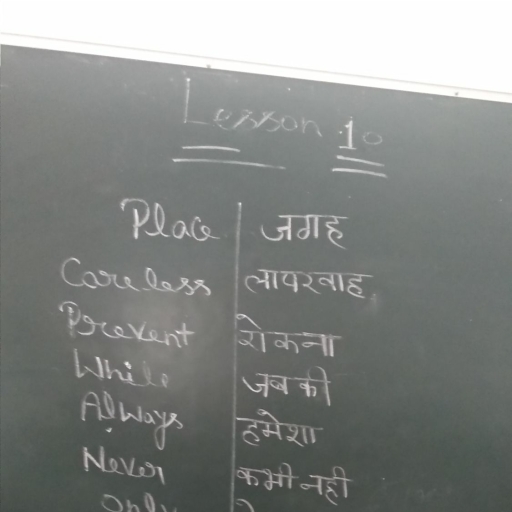 Lesson 10
Place जगह
Careless लापरवाह
Prevent रोकना
While जबकी
Always हमेशा
Never कभी नही
Only